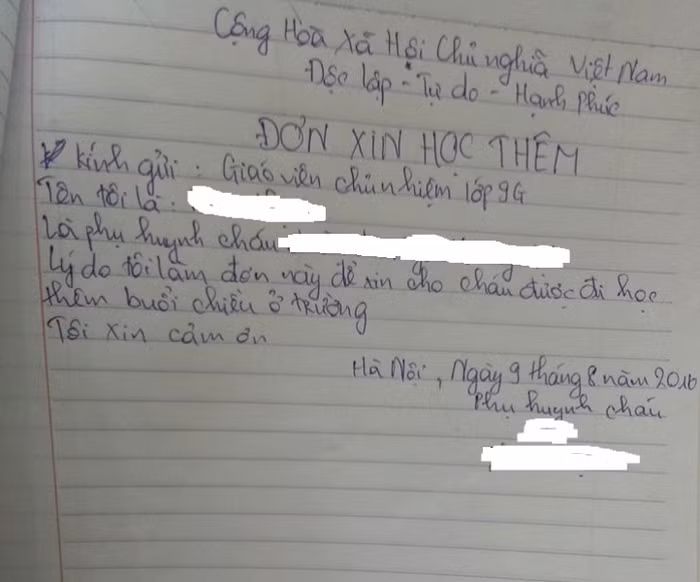 Cộng Hòa Xã Hội Chủ nghĩa Việt Nam
Độc lập - Tự do - Hạnh phúc
ĐƠN XIN HỌC THÊM
Kính gửi : Giáo viên chủ nhiệm lớp 9G
Tên tôi là :
Là phụ huynh cháu
Lý do tôi làm đơn này để xin cho cháu được đi học
thêm buổi chiều ở trường
Tôi xin cảm ơn
Hà Nội, Ngày 9 tháng 8 năm 2016
Phụ huynh cháu